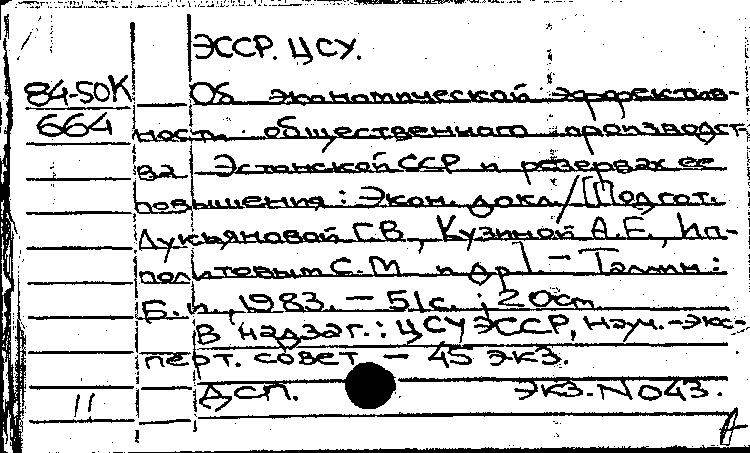 ЭССР. ЦСУ.
84-50К Об экономической эффектив-
664 ности общественного производст-
ва Эстонской ССР и резервах ее
повышения: Экон. докл./[Подгот.
Лукьяновой Г.В., Кузиной А.Е., Ип-
политовым С.М. и др]. – Таллин:
Б. и., 1983. – 51 с.; 20 см.
В надзаг.: ЦСУ ЭССР, Науч.-экс-
перт. совет. – 45 экз.
ДСП. Экз. N 043.
11